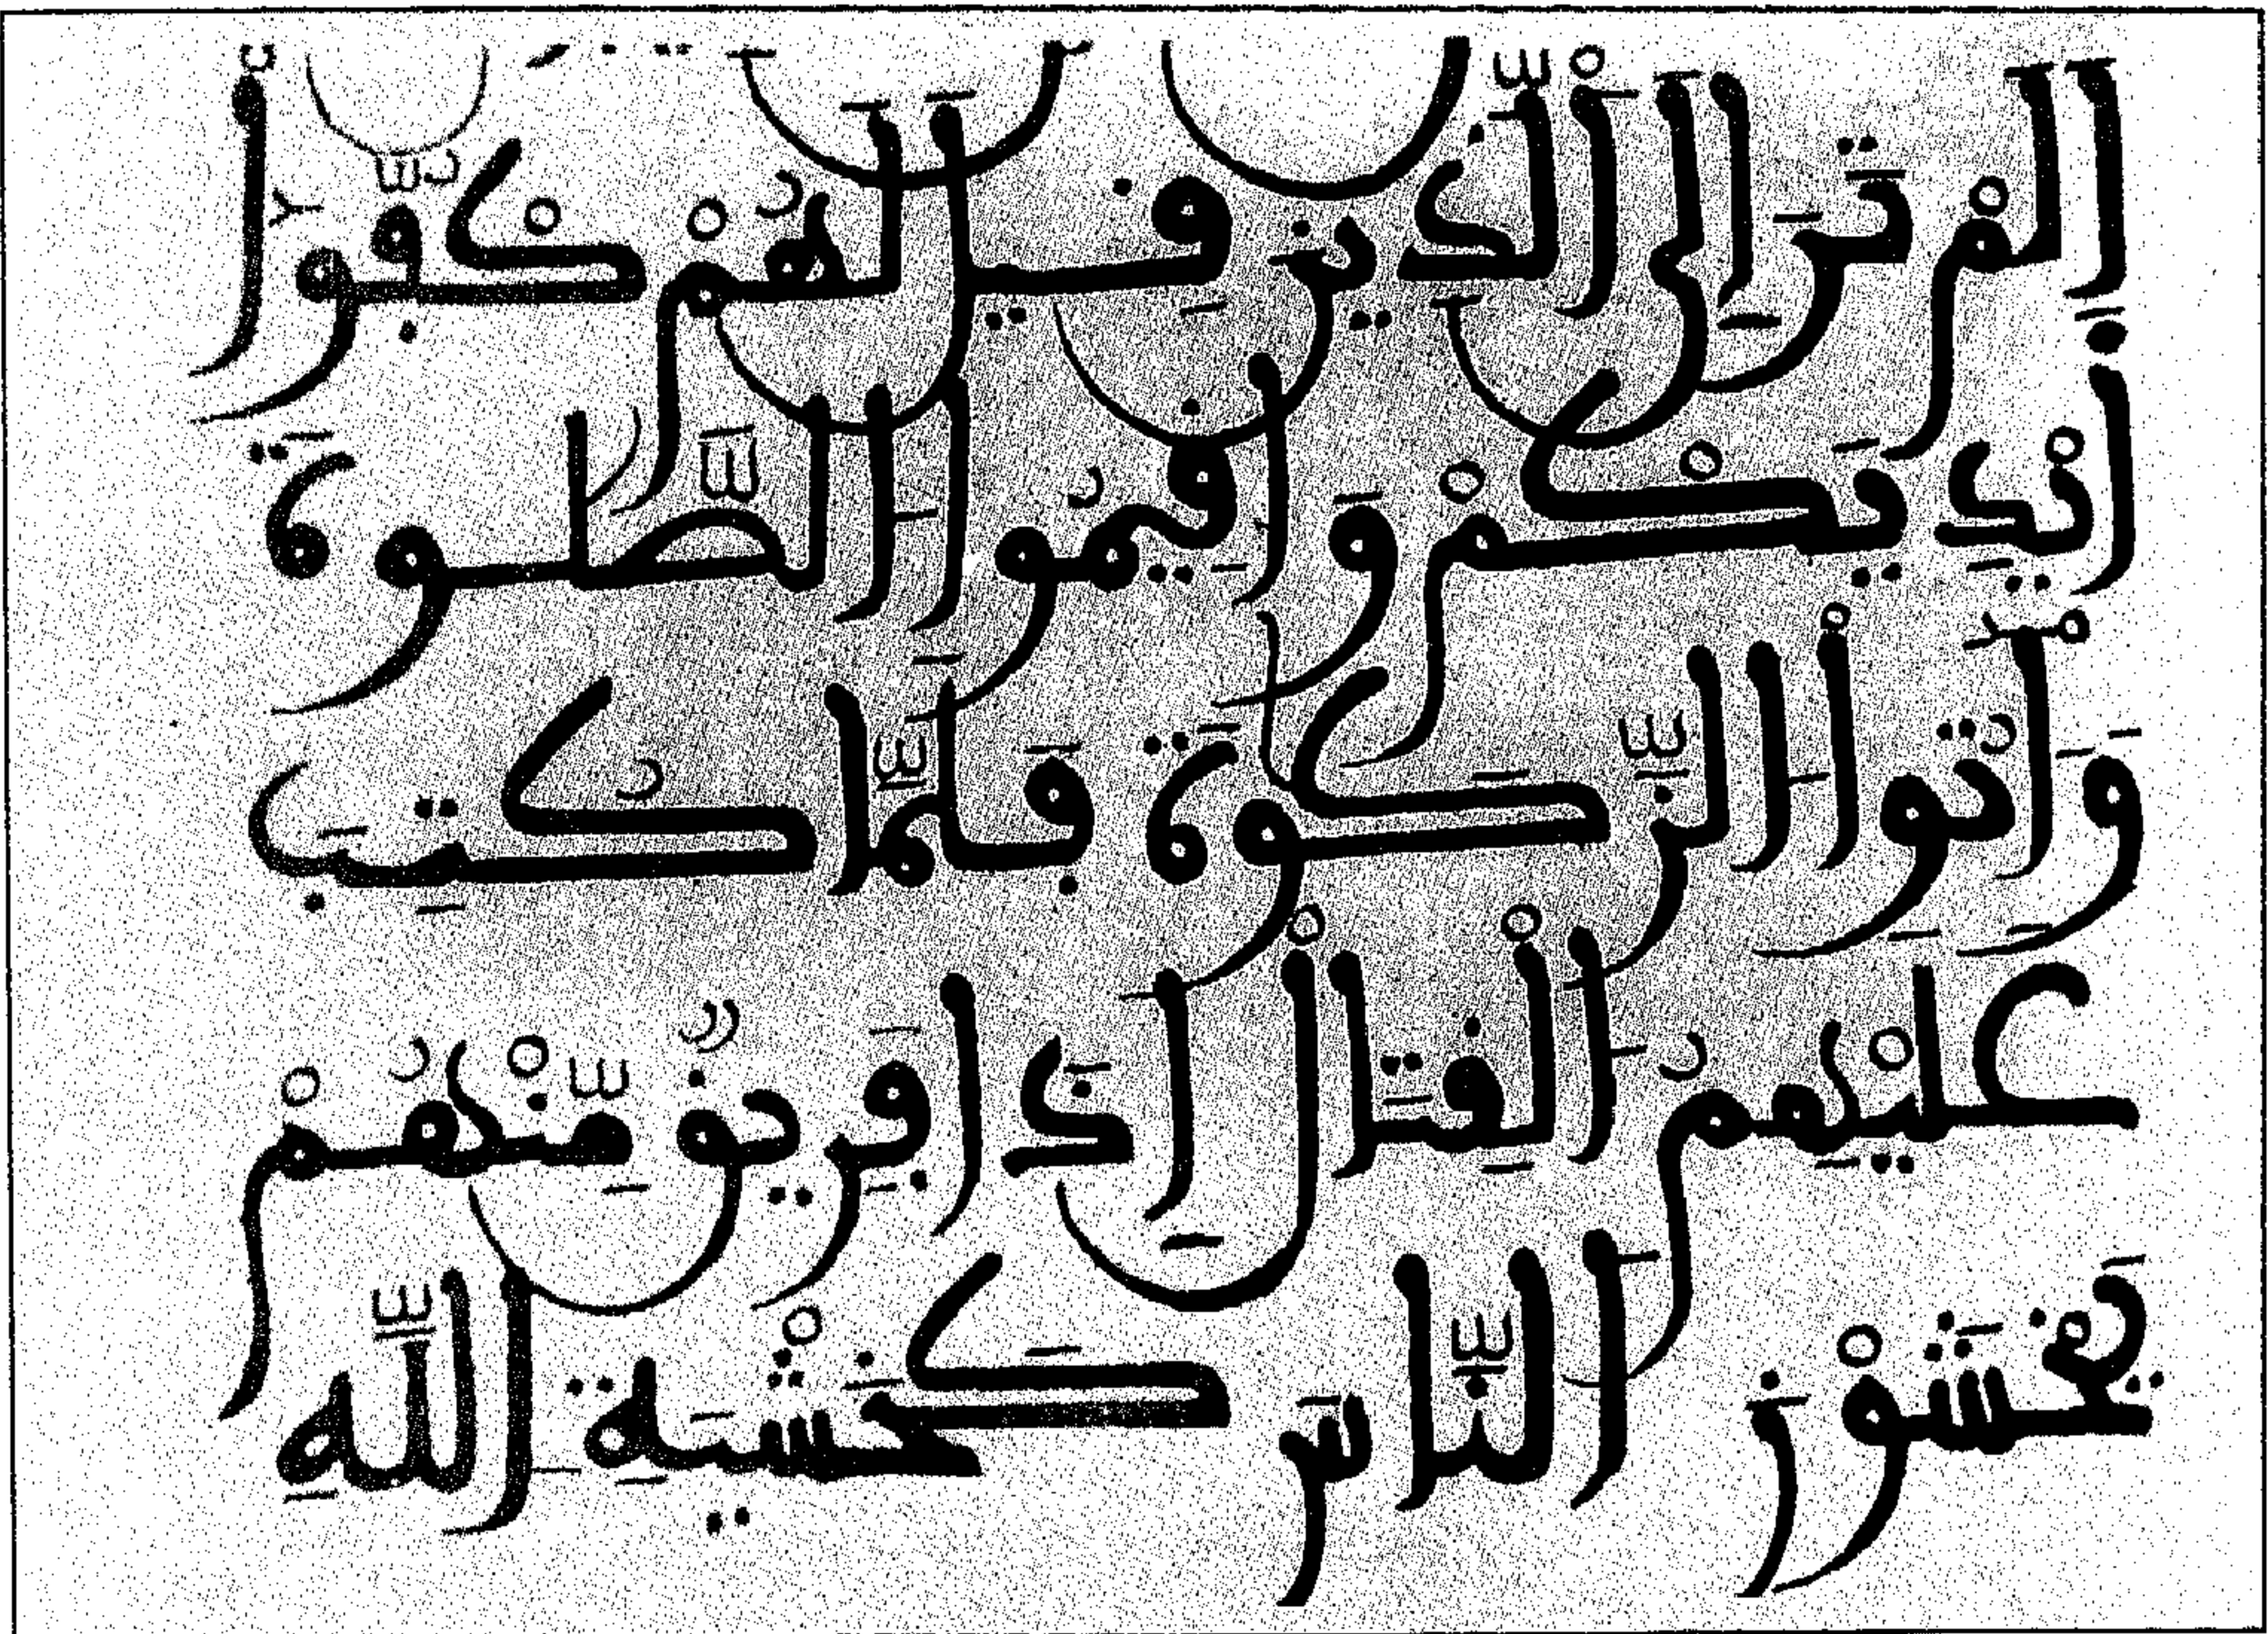 أَلَمْ تَرَ إِلَى الَّذِينَ قِيلَ لَهُمْ كُفُّوا
أَيْدِيَكُمْ وَأَقِيمُوا الصَّلَوٰةَ
وَءَاتُوا الزَّكَوٰةَ فَلَمَّا كُتِبَ
عَلَيْهِمُ الْقِتَالُ إِذَا فَرِيقٌ مِّنْهُمْ
يَخْشَوْنَ النَّاسَ كَخَشْيَةِ اللَّهِ